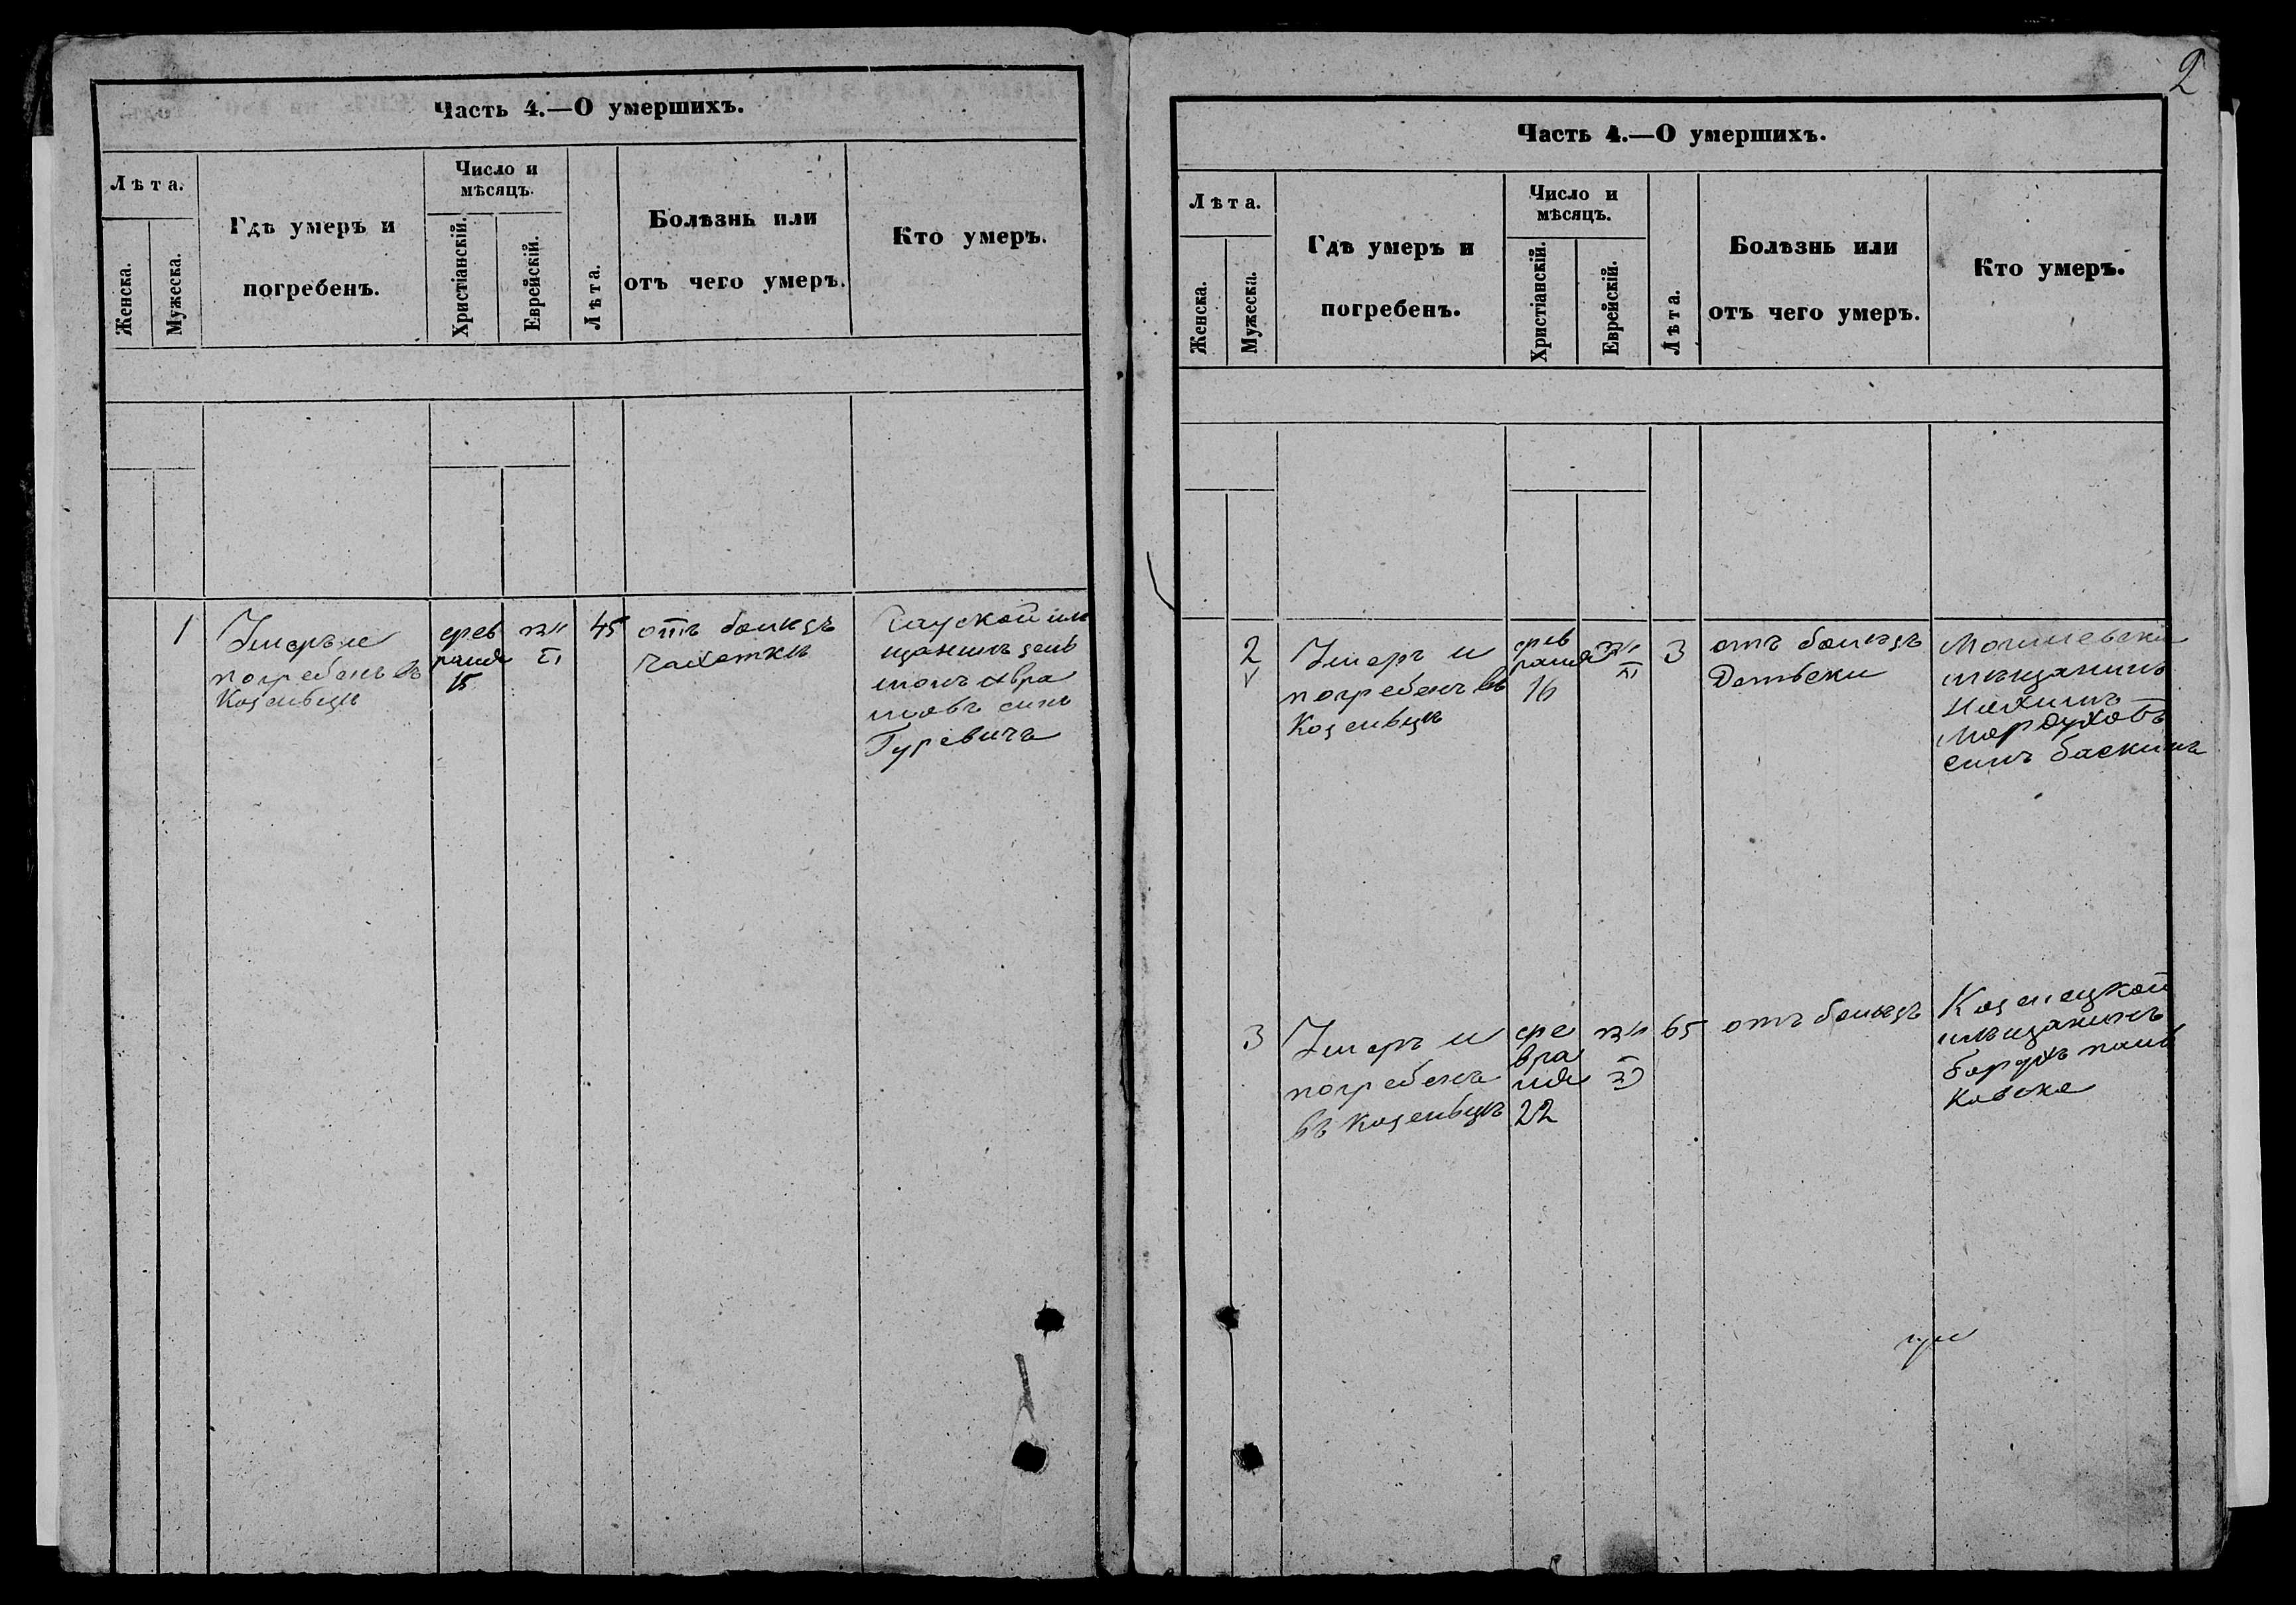 2
Часть 4.—О умершихъ.
Лѣта.
Женска.
Мужеска.
Гдѣ умеръ и
погребенъ.
Число и
мѣсяцъ.
Христіанскій.
Еврейскій.
Лѣта.
Болѣзнь или
отъ чего умеръ.
Кто умеръ.
1
Умеръ и
погребенъ въ
Козельцѣ
фев
раля
15
45
отъ болезъ
чахотки
щанинъ
Авра
мовъ синъ
Гуревичъ
Часть 4.—О умершихъ.
Лѣта.
Женска.
Мужеска.
Гдѣ умеръ и
погребенъ.
Число и
мѣсяцъ.
Христіанскій.
Еврейскій.
Лѣта.
Болѣзнь или
отъ чего умеръ.
Кто умеръ.
2
Умеръ и
погребенъ въ
Козельцѣ
фев
раля
16
3
отъ болезъ
Детьски
мѣщанинъ
Мордуховъ
синъ баскинъ
3
Умеръ и
погребенъ
въ Козельцѣ
фе
вра
ля
22
65
отъ болезъ
Козелецкой
мѣщанинъ